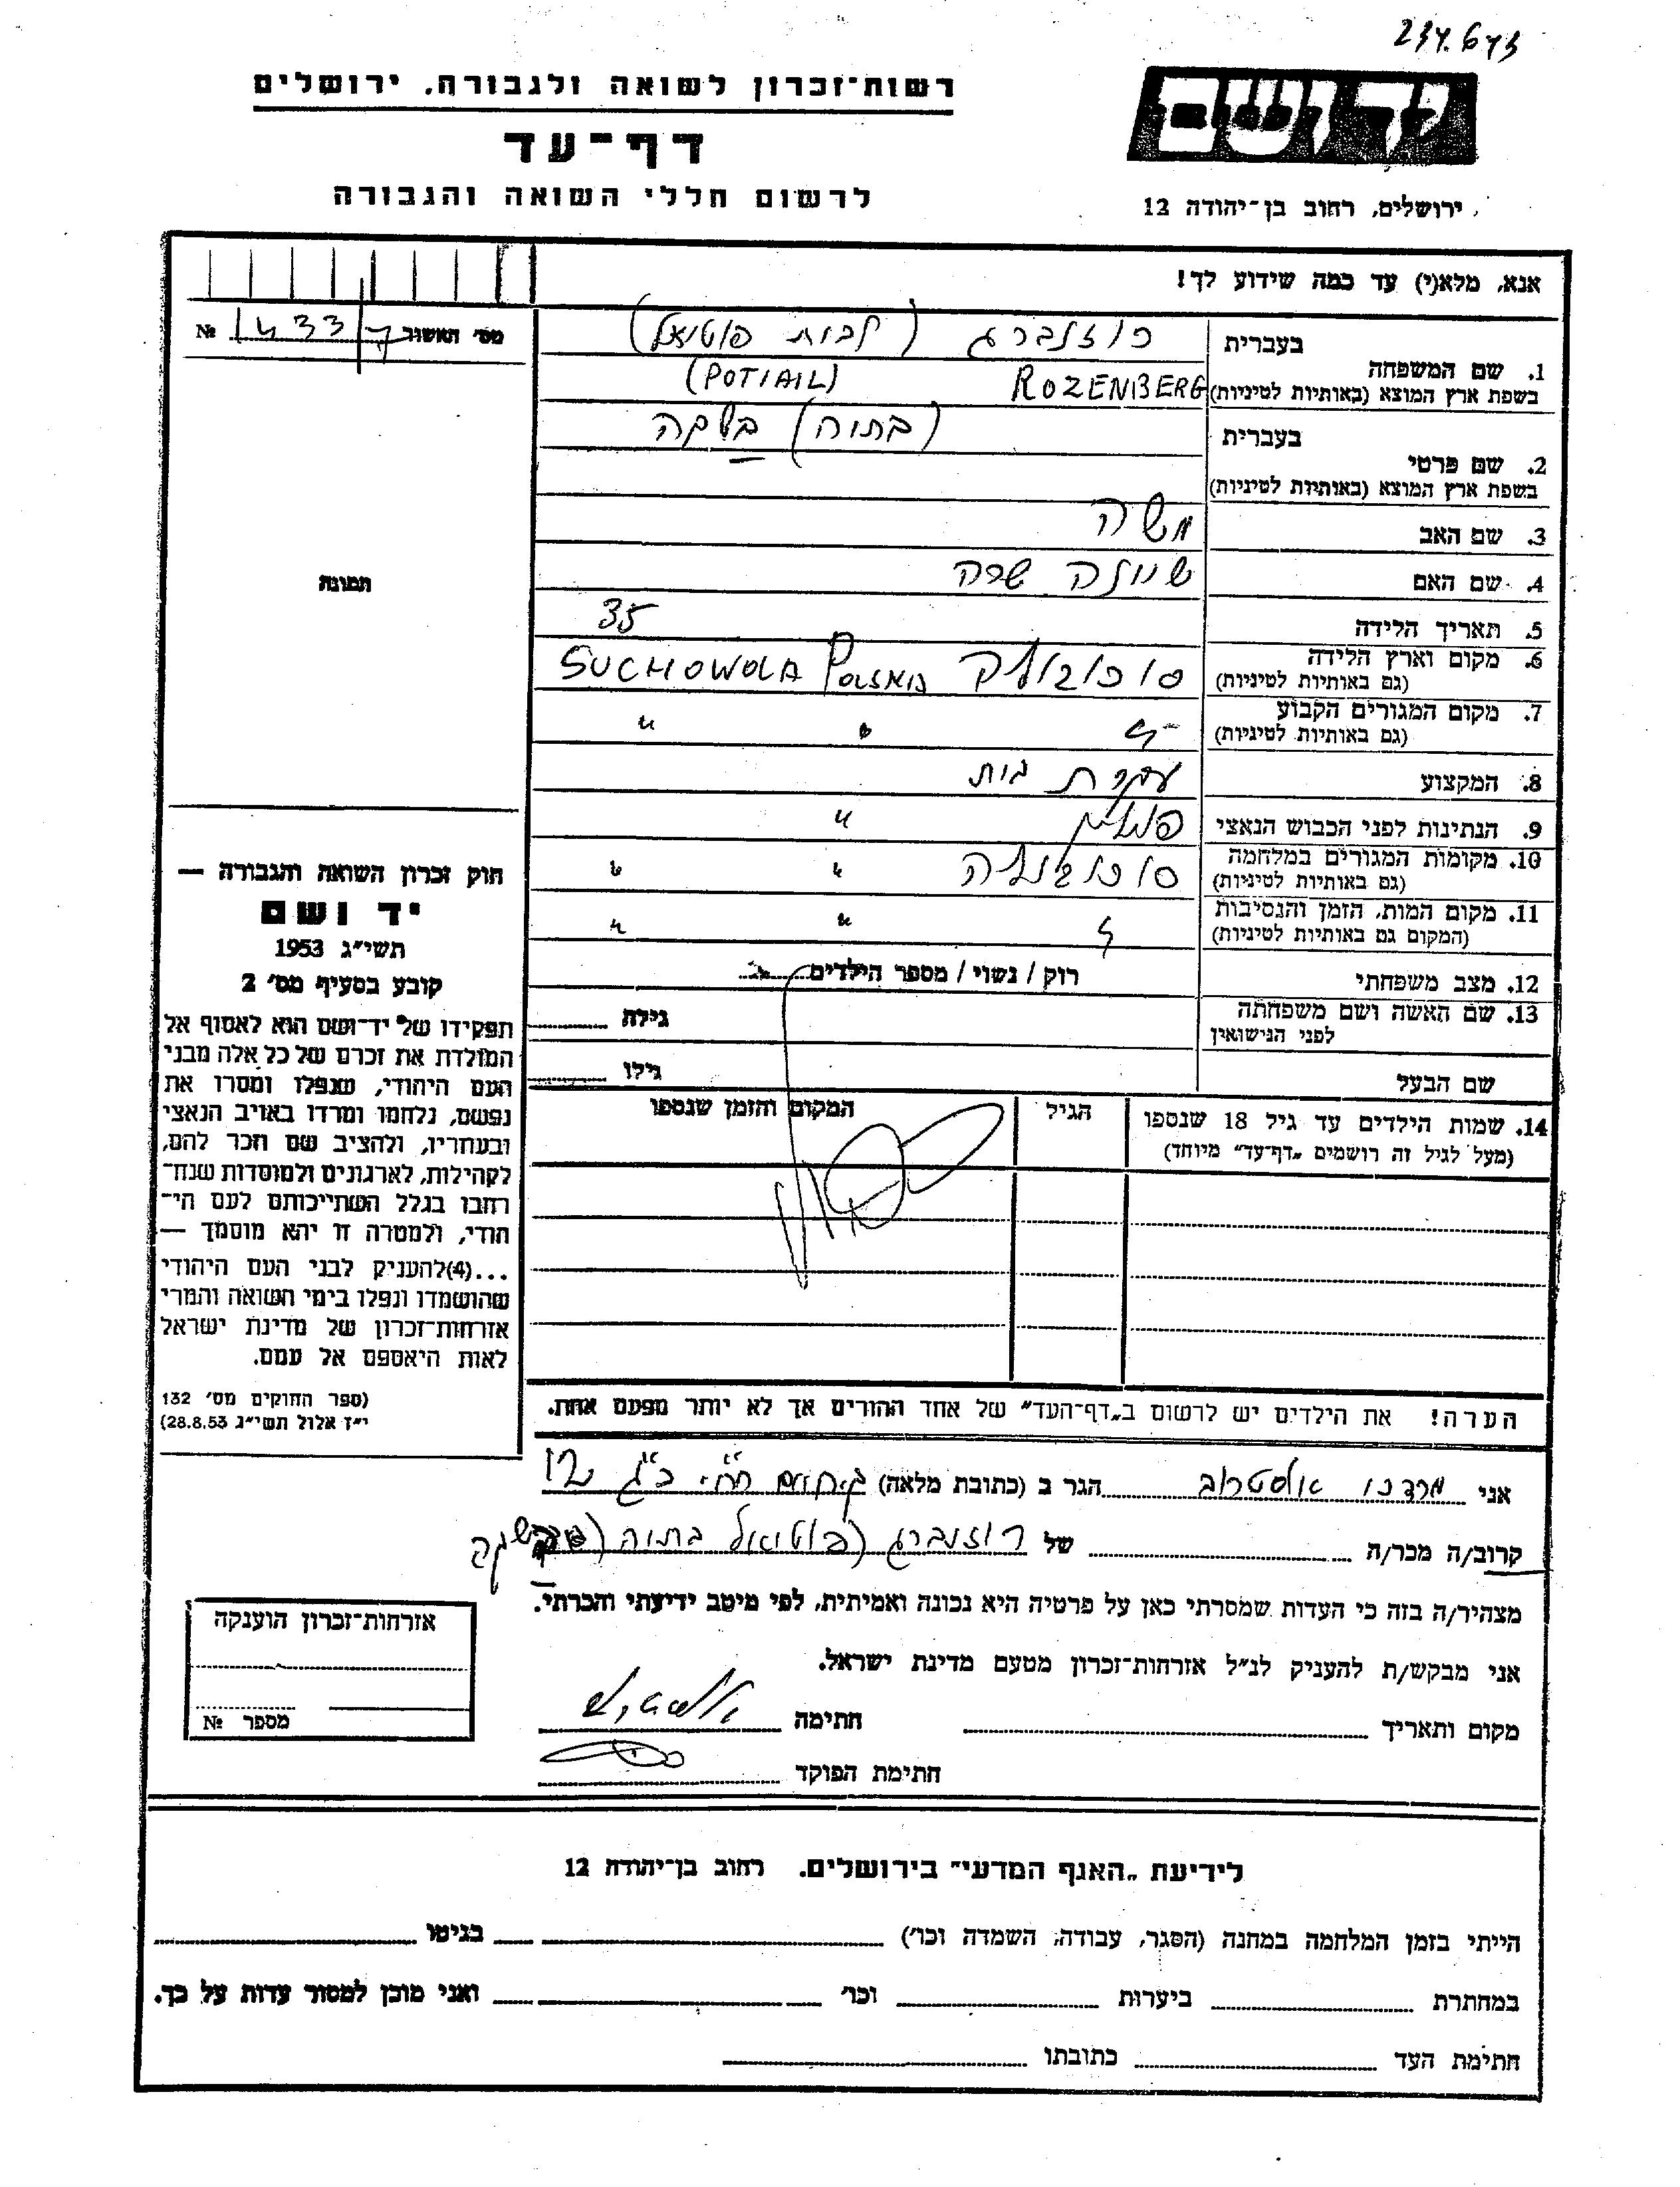 234.643
רשות־זכרון לשואה ולגבורה, ירושלים
יד ושם
דף־עד
לרשום חללי השואה והגבורה
ירושלים, רחוב בן־יהודה 12
אנא, מלא(י) עד כמה שידוע לך!
מס׳ האשור №
1. שם המשפחה
בעברית רוזנברג (לבית פוטיאל)
בשפת ארץ המוצא (באותיות לטיניות) ROZENBERG (POTIAIL)
2. שם פרטי
בעברית (בתיה) בשקה
בשפת ארץ המוצא (באותיות לטיניות)
3. שם האב משה
4. שם האם שרה
5. תאריך הלידה 35
6. מקום וארץ הלידה
(גם באותיות לטיניות) סוכובולה SUCHOWOLA
7. מקום המגורים הקבוע
(גם באותיות לטיניות) " "
8. המקצוע עקרת בית
9. הנתינות לפני הכבוש הנאצי "
10. מקומות המגורים במלחמה
(גם באותיות לטיניות) סוכובולה " "
11. מקום המות, הזמן והנסיבות
(המקום גם באותיות לטיניות) " "
12. מצב משפחתי רוק / נשוי / מספר הילדים
13. שם האשה ושם משפחתה
לפני הנישואין גילה
שם הבעל גילו
14. שמות הילדים עד גיל 18 שנספו
(מעל לגיל זה רושמים „דף־עד" מיוחד)
הגיל
המקום והזמן שנספו
תמונה
חוק זכרון השואה והגבורה —
יד ושם
תשי״ג 1953
קובע בסעיף מס׳ 2
תפקידו של יד־ושם הוא לאסוף אל
המולדת את זכרם של כל אלה מבני
העם היהודי, שנפלו ומסרו את
נפשם, נלחמו ומרדו באויב הנאצי
ובעוזריו, ולהציב שם וזכר להם,
לקהילות, לארגונים ולמוסדות שנח־
רבו בגלל השתייכותם לעם הי־
הודי, ולמטרה זו יהא מוסמך —
...(4)להעניק לבני העם היהודי
שהושמדו ונפלו בימי השואה והמרי
אזרחות־זכרון של מדינת ישראל
לאות היאספם אל עמם.
(ספר החוקים מס׳ 132
י״ז אלול תשי״ג 28.8.53)
הערה! את הילדים יש לרשום ב„דף־העד" של אחד ההורים אך לא יותר מפעם אחת.
אני מרדכי אלסטרוב הגר ב (כתובת מלאה)
קרוב/ה מכר/ה של רוזנברג (פוטיאל בתיה (
מצהיר/ה בזה כי העדות שמסרתי כאן על פרטיה היא נכונה ואמיתית, לפי מיטב ידיעתי והכרתי.
אני מבקש/ת להעניק לנ״ל אזרחות־זכרון מטעם מדינת ישראל.
מקום ותאריך חתימה
חתימת הפוקד
אזרחות־זכרון הוענקה
מספר №
לידיעת „האגף המדעי" בירושלים. רחוב בן־יהודה 12
הייתי בזמן המלחמה במחנה (הסגר, עבודה, השמדה וכו׳) בגיטו
במחתרת ביערות וכו׳ ואני מוכן למסור עדות על כך.
חתימת העד כתובתו